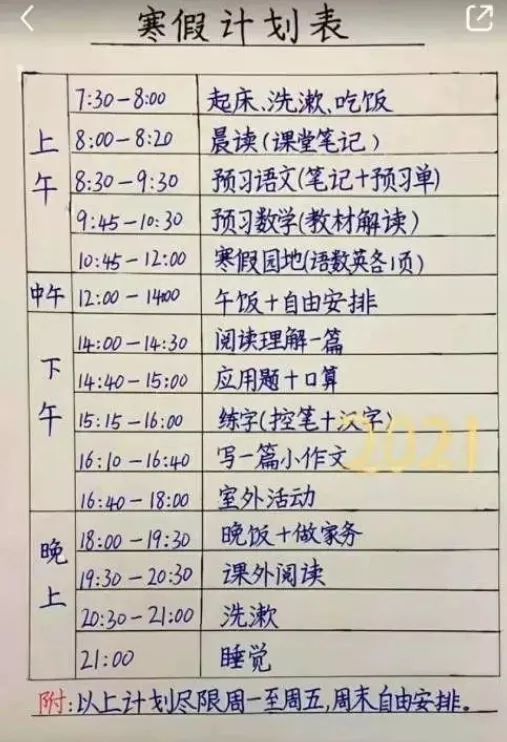 寒假计划表
上午
7:30-8:00 起床、洗漱、吃饭
8:00-8:20 晨读(课堂笔记)
8:30-9:30 预习语文(笔记+预习单)
9:45-10:30 预习数学(教材解读)
10:45-12:00 寒假园地(语数英各1页)
中午
12:00-14:00 午饭+自由安排
下午
14:00-14:30 阅读理解一篇
14:40-15:00 应用题+口算
15:15-16:00 练字(控笔+汉字)
16:10-16:40 写一篇小作文
16:40-18:00 室外活动
晚上
18:00-19:30 晚饭+做家务
19:30-20:30 课外阅读
20:30-21:00 洗漱
21:00 睡觉
附:以上计划尽限周一至周五,周末自由安排。
2021